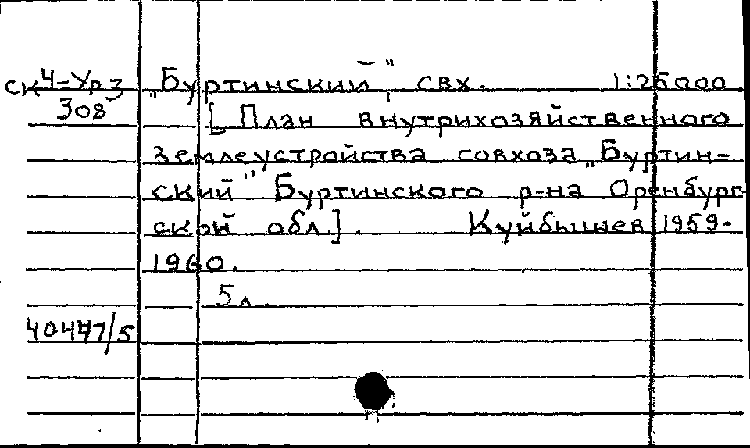 ск 4-Ур 3 „Буртинский", свх. 1:25000
308 [План внутрихозяйственного
землеустройства совхоза „Буртин-
ский" Буртинского р-на Оренбург-
ской обл.]. Куйбышев 1959-
1960.
5 л.
40447/5